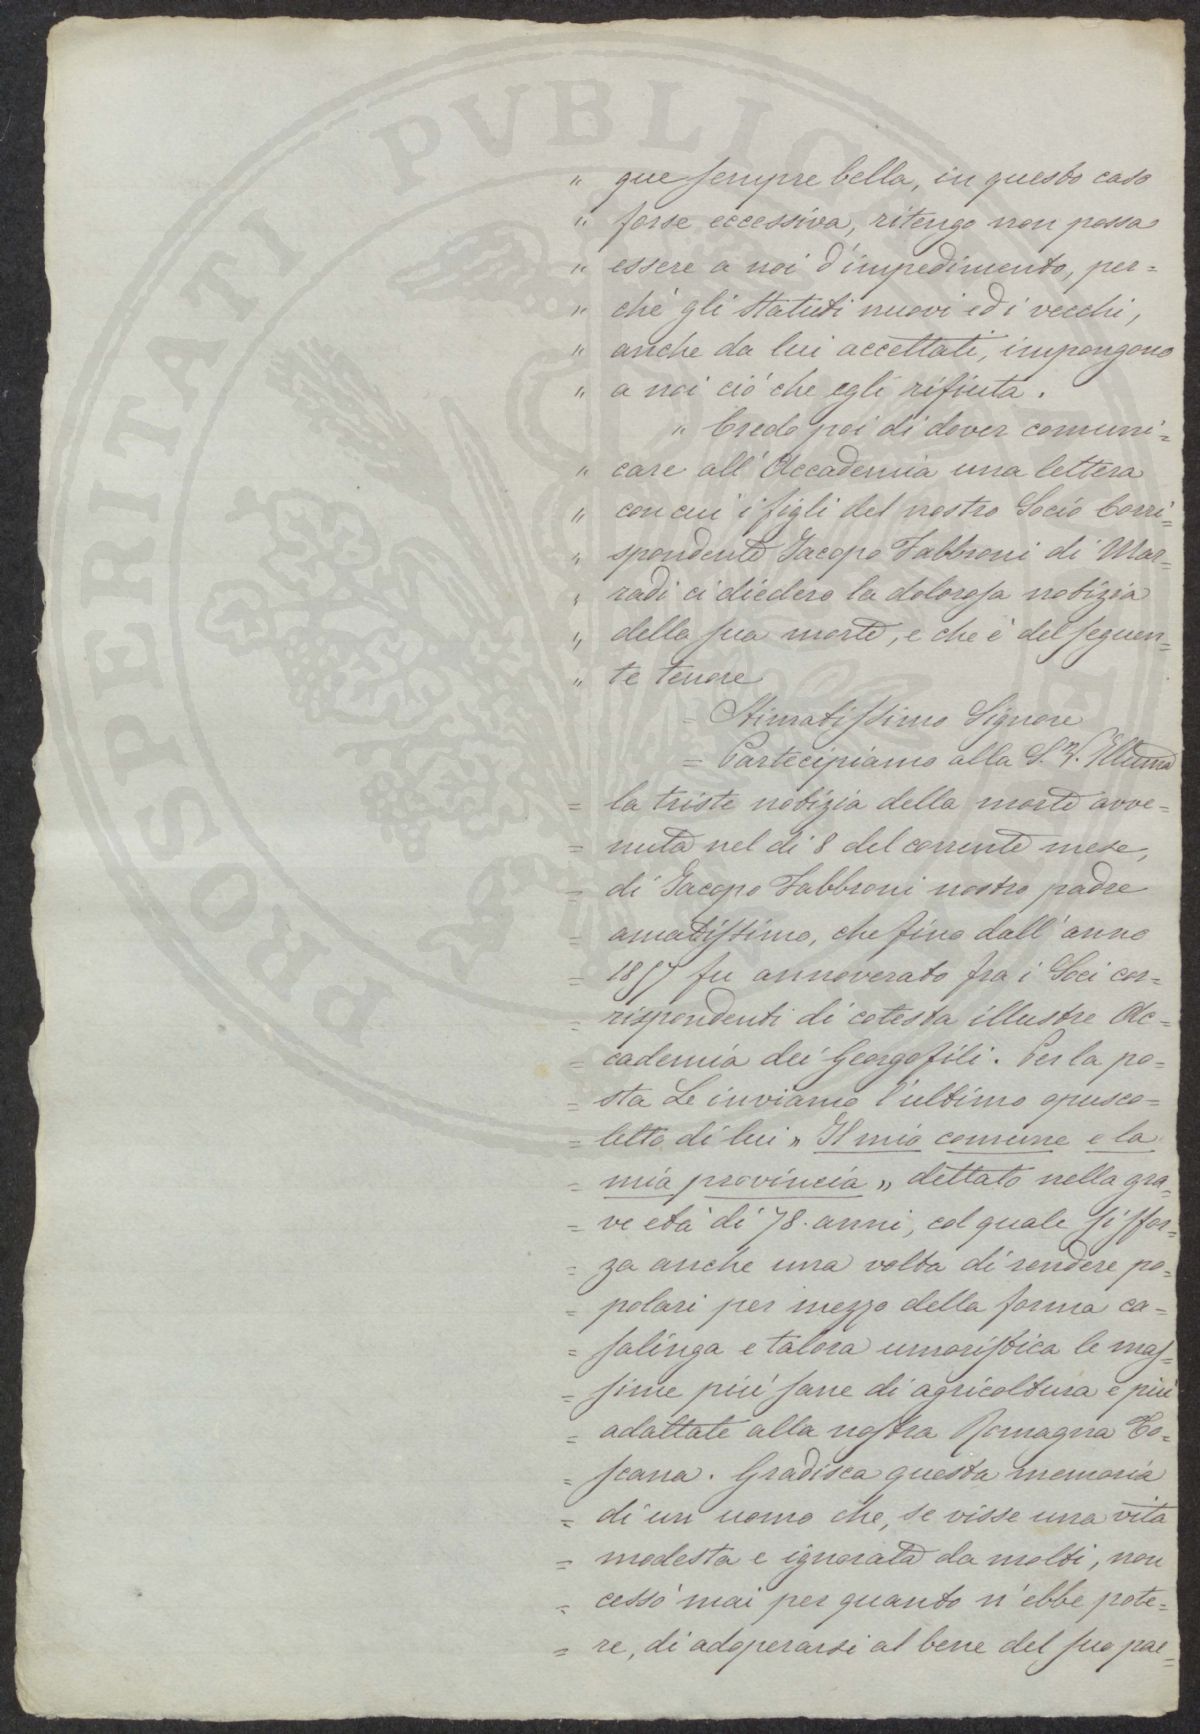 " que sempre bella, in questo caso
" forse eccessiva, ritengo non possa
" essere a noi d'impedimento, per=
" chè gli statuti nuovi ed i vecchi,
" anche da lui accettati, impongono
" a noi ciò che egli rifiuta.
" Credo poi di dover comuni=
" care all'Accademia una lettera
" con cui i figli del nostro Socio Corri=
" spondente Jacopo Fabbroni di Mar=
" radi ci diedero la dolorosa notizia
" della sua morte, e che è del seguen=
" te tenore
= Stimatissimo Signore
= Partecipiamo alla S. V. Illuma
= la triste notizia della morte avve=
= nuta nel dì 8 del corrente mese,
= di Jacopo Fabbroni nostro padre
= amatissimo, che fino dall'anno
= 1857 fu annoverato fra i Soci cor=
= rispondenti di cotesta illustre Ac=
= cademia dei Georgofili. Per la po=
= sta Le inviamo l'ultimo opusco=
= letto di lui " Il mio comune e la
= mia provincia " dettato nella gra=
= ve età di 78. anni, col quale si sfor=
= za anche una volta di rendere po=
= polari per mezzo della forma ca=
= salinga e talora umoristica le mas=
= sime più sane di agricoltura e più
= adattate alla nostra Romagna To=
= scana. Gradisca questa memoria
= di un uomo che, se visse una vita
= modesta e ignorata da molti, non
= cessò mai per quanto n'ebbe pote=
= re, di adoperarsi al bene del suo pae=
PROSPERITATI PVBLICAE